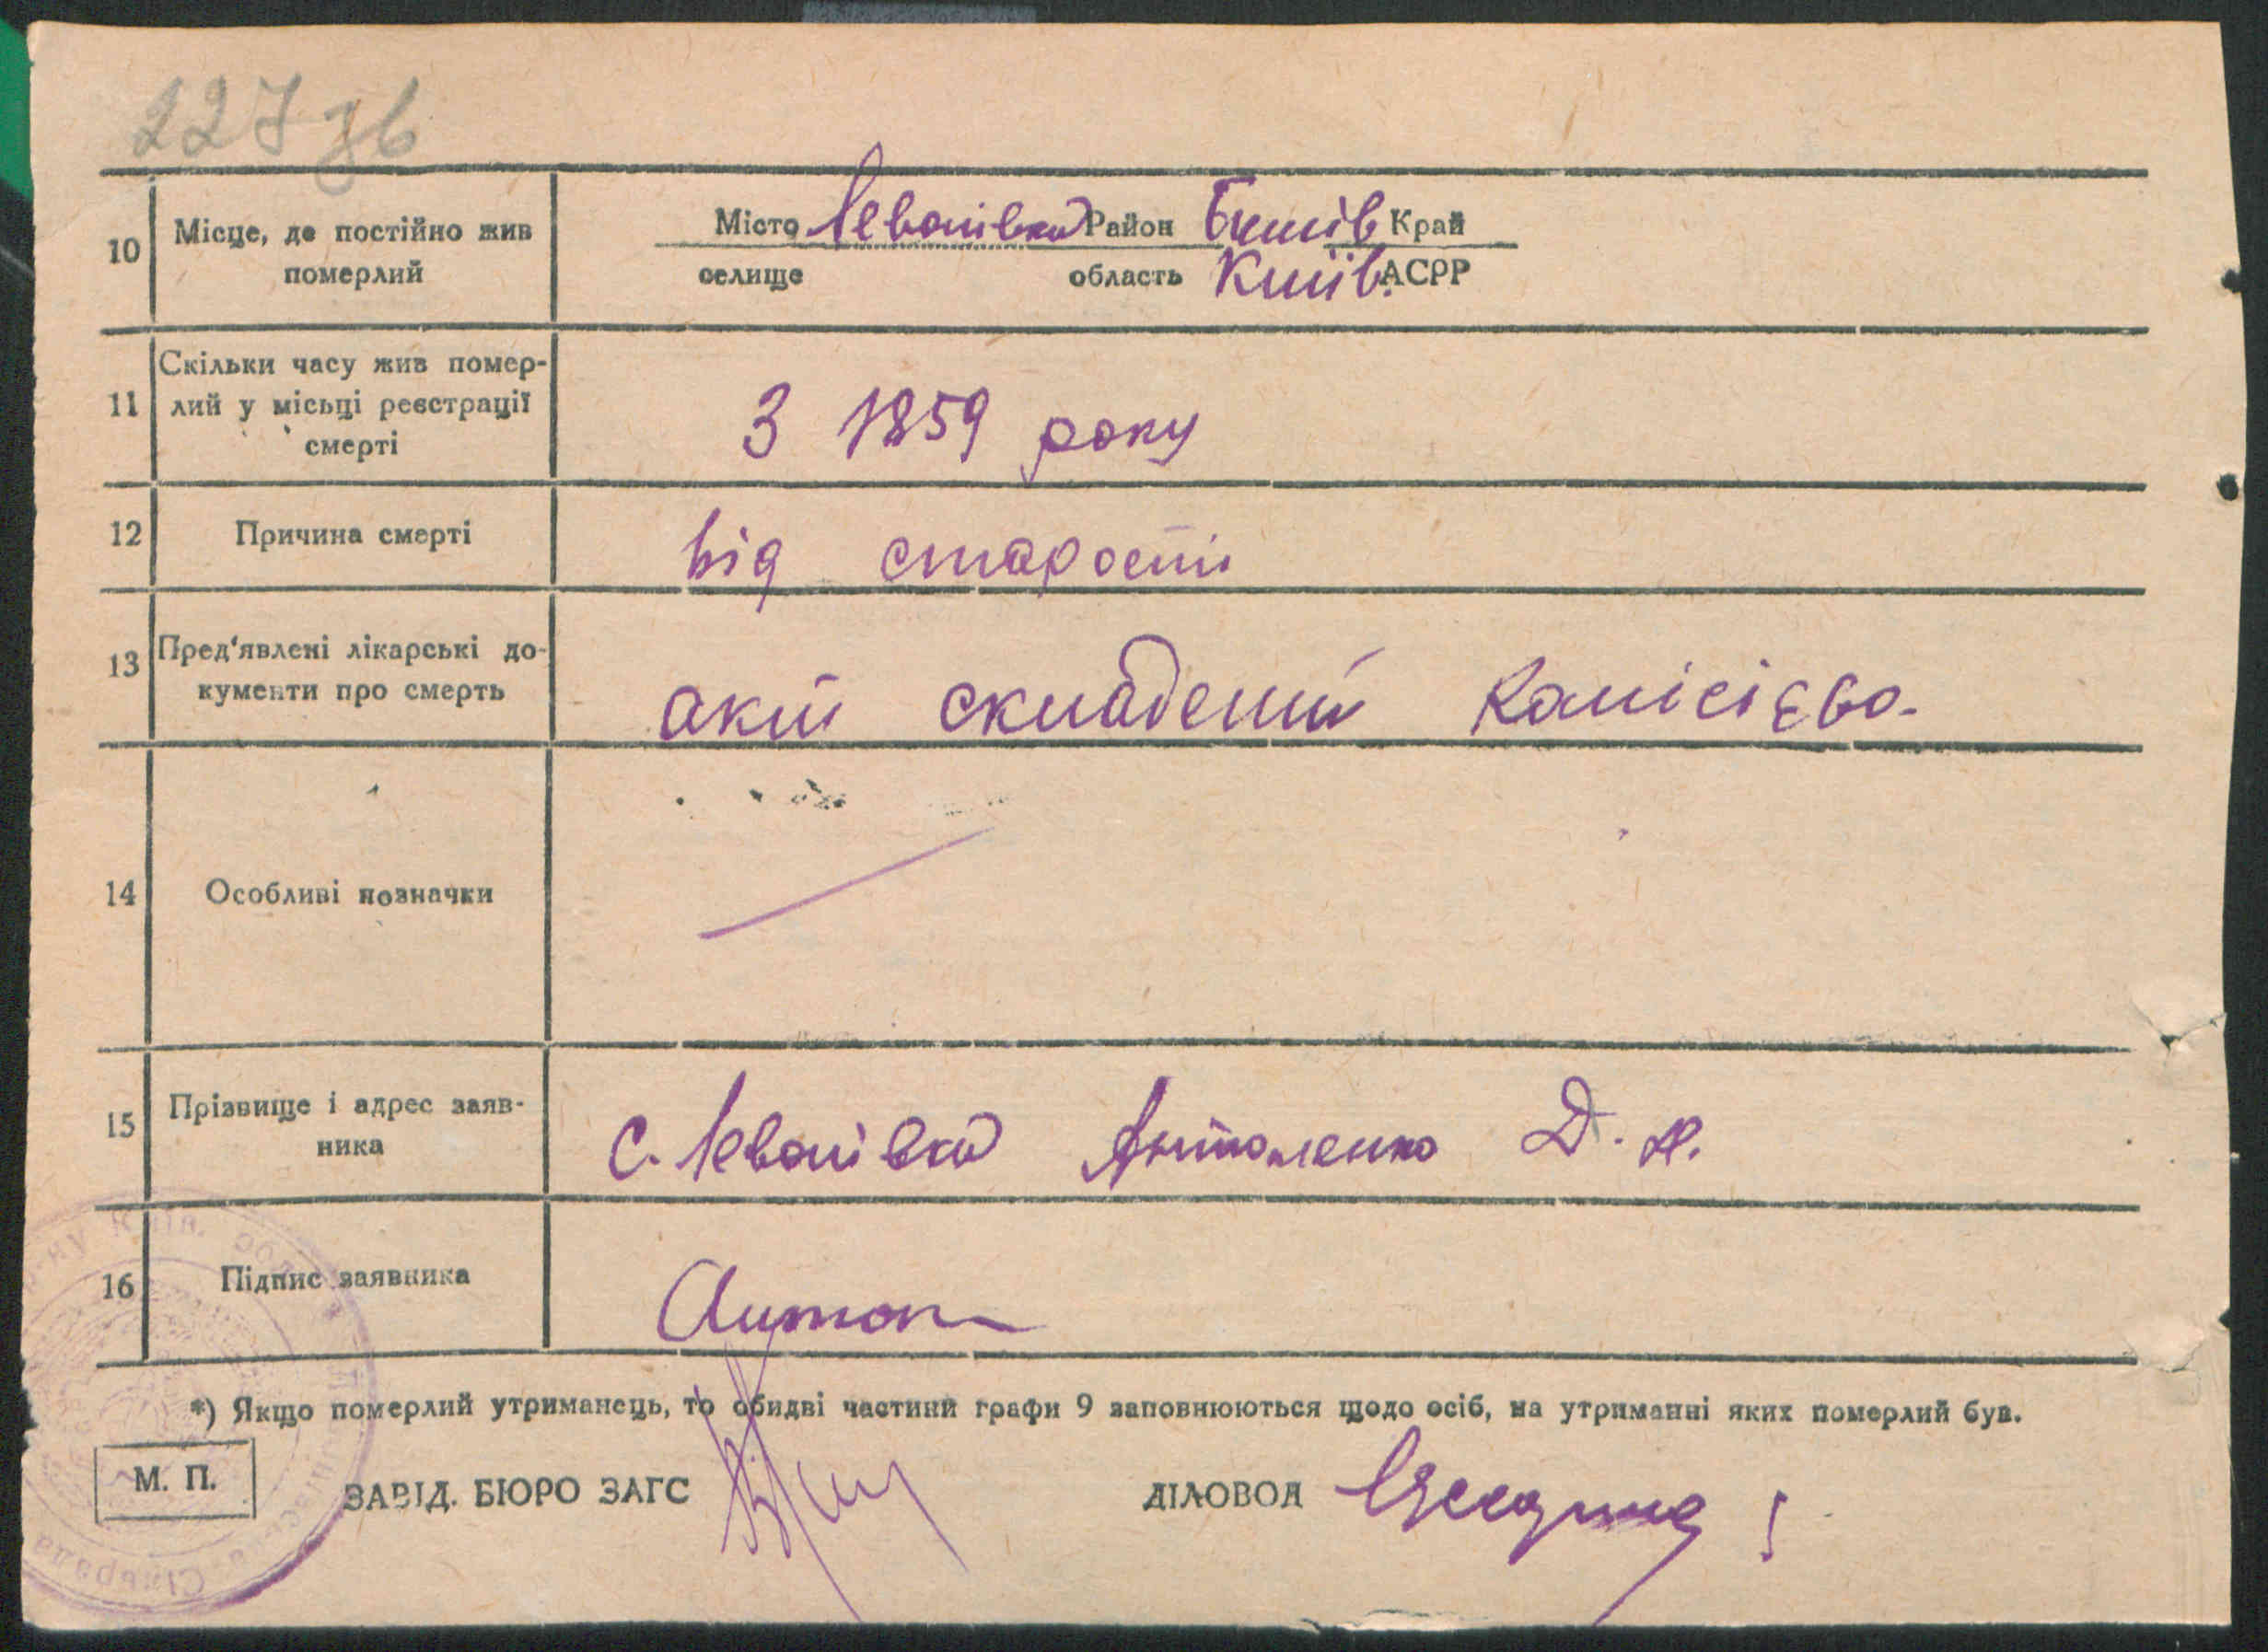 227 зв
10 Місце, де постійно жив померлий
Місто Леонівка Район Бишів Край
селище область Київ. АСРР
11 Скільки часу жив помер-
лий у місьці реєстрації
смерті
З 1859 року
12 Причина смерті
від старости
13 Пред'явлені лікарські до-
кументи про смерть
акт складений комісією
14 Особливі позначки
15 Прізвище і адрес заяв-
ника
с. Антоненко Д.
16 Підпис заявника
Антон
*) Якщо померлий утриманець, то обидві частини графи 9 заповнюються щодо осіб, на утриманні яких померлий був.
М. П.
ЗАВІД. БЮРО ЗАГС
ДІЛОВОД
Київ. обл.
Сільрада